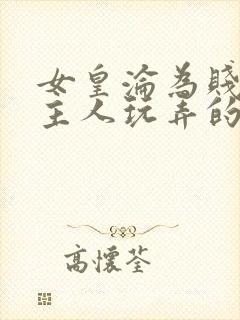 女皇淪為賤
主人玩弄的
高懷荃